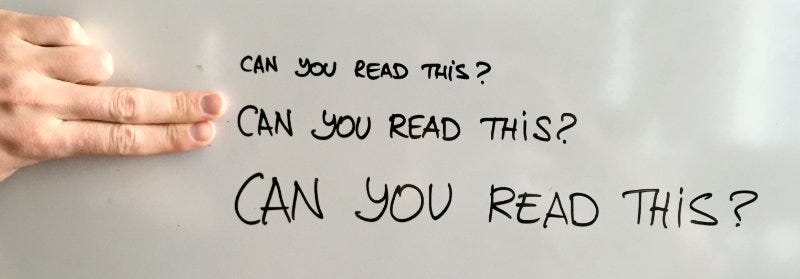 CAN YOU READ THiS?
CAN YOU READ THiS?
CAN YOU READ THiS?